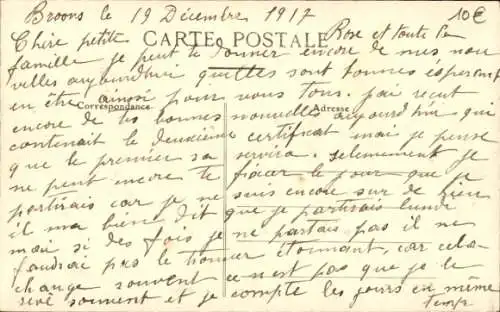 Broons le 19 Décembre 1917
10€
Chère petite Rose et toute la
CARTE POSTALE
famille je peut te donner encore de mes nou
velles aujourd'hui qu'elles sont bonnes espérant
en être ainssi pour vous tous. j'ai recut
Correspondance Adresse
encore de tes bonnes nouvelles aujourd'hui qui
contenait le deuxième certificat mai je pense
que le premier sa servira. selemement je
ne peut encore te fixer le jour que je
partirais car je ne suis encore sur de bien
il ma bien dit que je partirais lundi
mai si des fois je ne partais pas il ne
faudrai pas le tonner étonnant, car cela
change souvent ce n'est pas que je le
rêve souvent et je compte les jours en même
temps